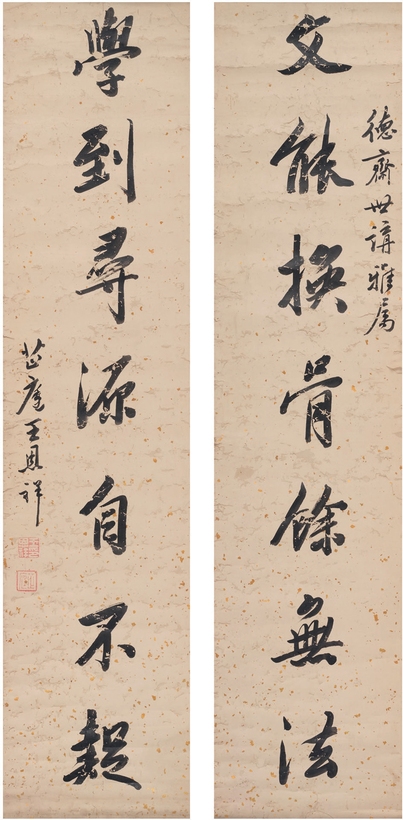 德齋世講雅屬
文能換骨餘無法
學到尋源自不疑
芷庵王恩祥